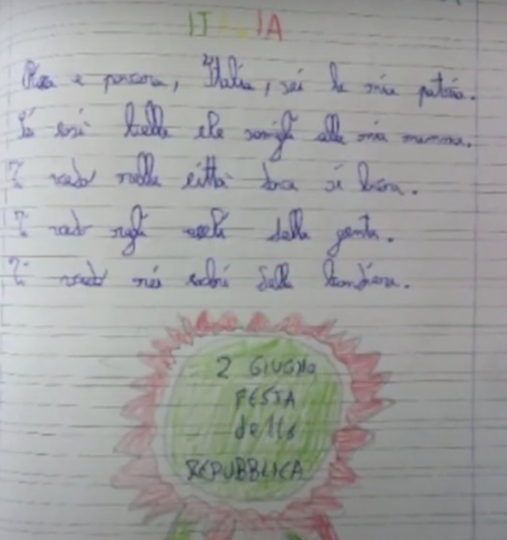 ITALIA
Ricca e povera, Italia, sei la mia patria.
Sei così bella che somigli alla mia mamma.
Ti vedo nelle città dove si lavora.
Ti vedo negli occhi della gente.
Ti vedo nei colori della bandiera.
2 GIUGNO
FESTA
della
REPUBBLICA